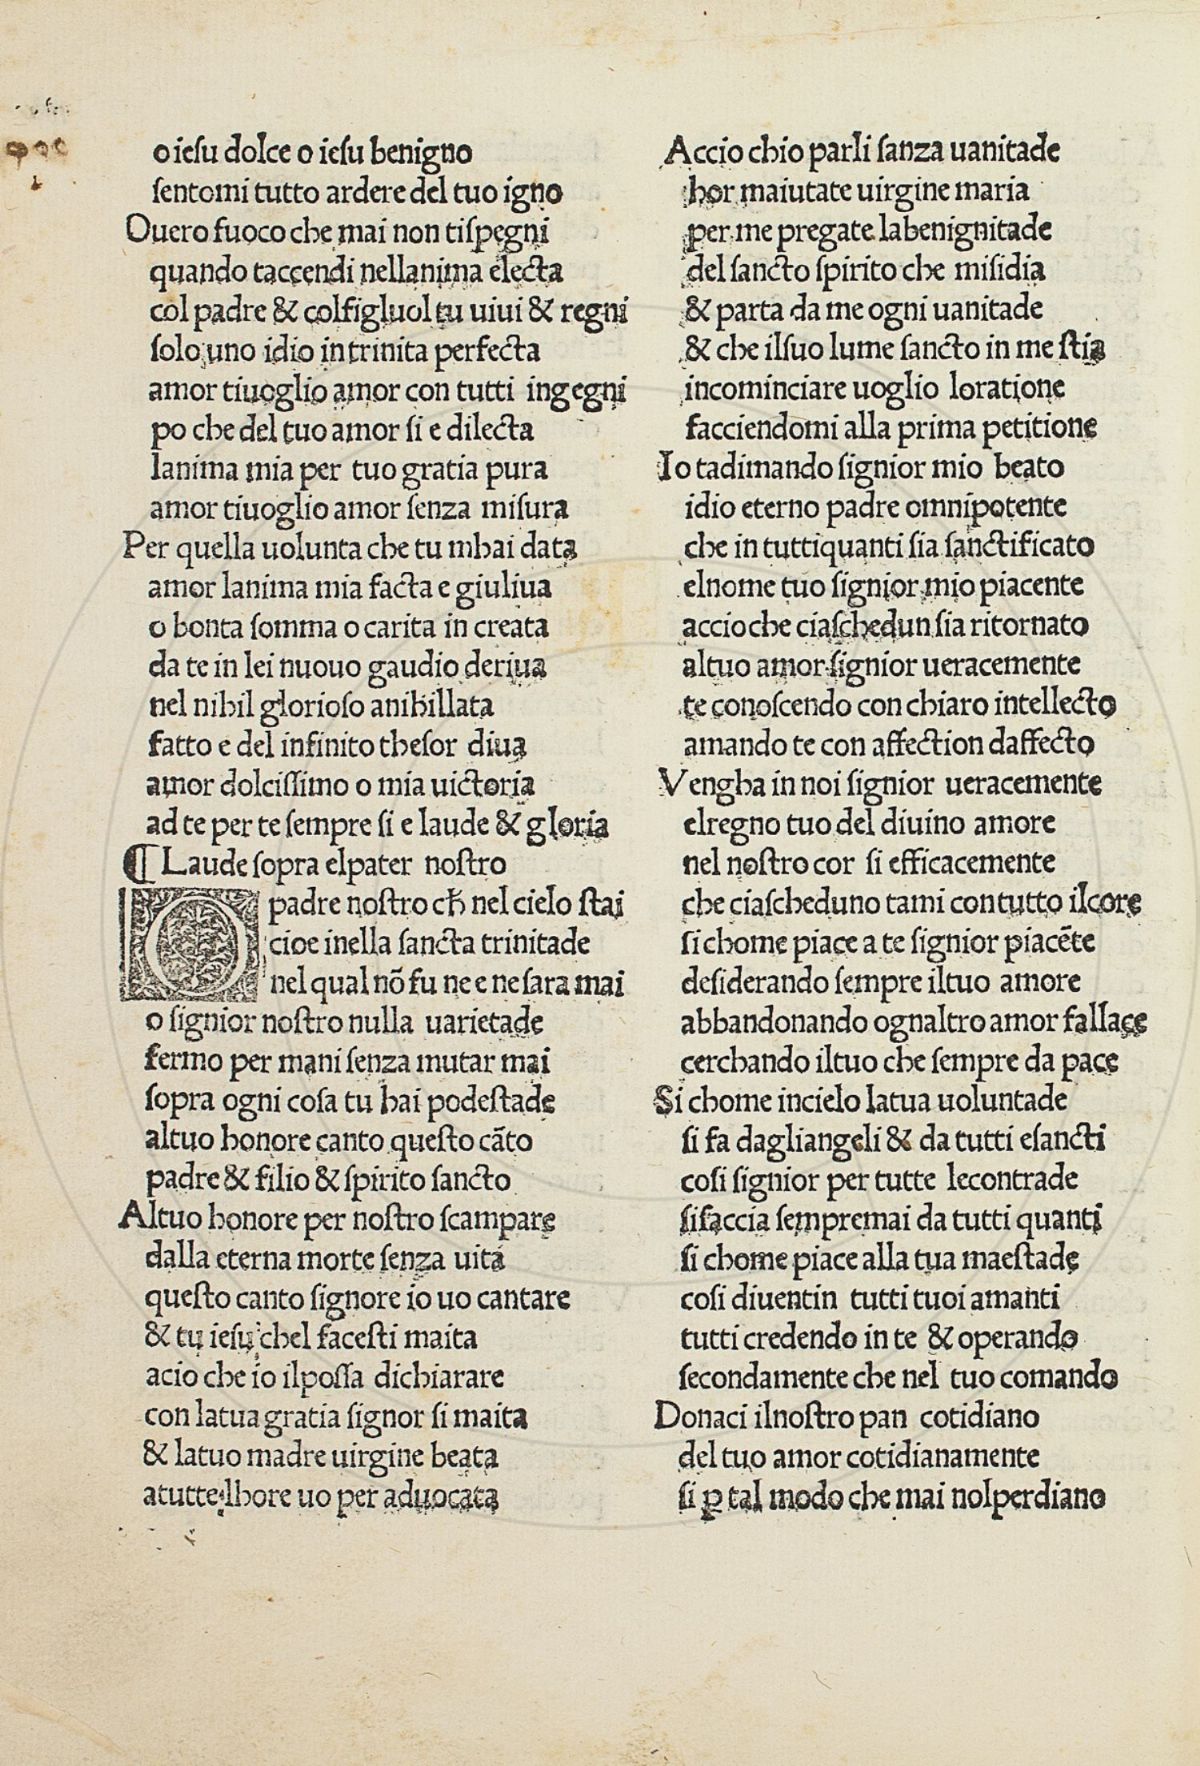 o ieſu dolce o ieſu benigno
ſentomi tutto ardere del tuo igno
O uero fuoco che mai non tiſpegni
quando taccendi nellanima electa
col padre & colfigluol tu uiui & regni
ſolo uno idio in trinita perfecta
amor tiuoglio amor con tutti ingegni
po che del tuo amor ſi e dilecta
lanima mia per tuo gratia pura
amor tiuoglio amor ſenza miſura
Per quella uolunta che tu mhai data
amor lanima mia facta e giuliua
o bonta ſomma o carita in creata
da te in lei nuouo gaudio deriua
nel nihil glorioſo anihillata
fatto e del infinito theſor diua
amor dolciſſimo o mia uictoria
ad te per te ſempre ſi e laude & gloria
¶ Laude ſopra elpater noſtro
O padre noſtro cħ nel cielo ſtai
cioe inella ſancta trinitade
nel qual nō fu ne e ne ſara mai
o ſignior noſtro nulla uarietade
fermo per mani ſenza mutar mai
ſopra ogni coſa tu hai podeſtade
altuo honore canto queſto cāto
padre & filio & ſpirito ſancto
Altuo honore per noſtro ſcampare
dalla eterna morte ſenza uita
queſto canto ſignore io uo cantare
& tu ieſu chel faceſti maita
acio che io ilpoſſa dichiarare
con latua gratia ſignor ſi maita
& latuo madre uirgine beata
atutte lhore uo per aduocata
Accio chio parli ſanza uanitade
hor maiutate uirgine maria
per me pregate labenignitade
del ſancto ſpirito che miſidia
& parta da me ogni uanitade
& che ilſuo lume ſancto in me ſtia
incominciare uoglio loratione
facciendomi alla prima petitione
Io tadimando ſignior mio beato
idio eterno padre omnipotente
che in tuttiquanti ſia ſanctificato
elnome tuo ſignior mio piacente
accio che ciaſchedun ſia ritornato
altuo amor ſignior ueracemente
te conoſcendo con chiaro intellecto
amando te con affection daffecto
Vengha in noi ſignior ueracemente
elregno tuo del diuino amore
nel noſtro cor ſi efficacemente
che ciaſcheduno tami contutto ilcore
ſi chome piace a te ſignior piacēte
deſiderando ſempre iltuo amore
abbandonando ognaltro amor fallace
cerchando iltuo che ſempre da pace
Si chome incielo latua uoluntade
ſi fa dagliangeli & da tutti eſancti
coſi ſignior per tutte lecontrade
ſifaccia ſempremai da tutti quanti
ſi chome piace alla tua maeſtade
coſi diuentin tutti tuoi amanti
tutti credendo in te & operando
ſecondamente che nel tuo comando
Donaci ilnoſtro pan cotidiano
del tuo amor cotidianamente
ſi ꝑ tal modo che mai nolperdiano